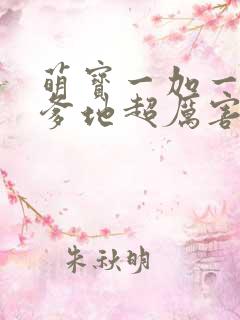 萌宝一加一
爹地超厉害
朱秋明